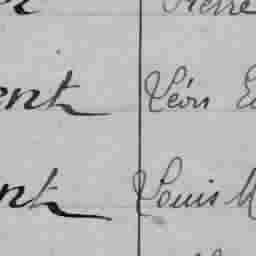 Pierre
ent Léon
ent Louis M